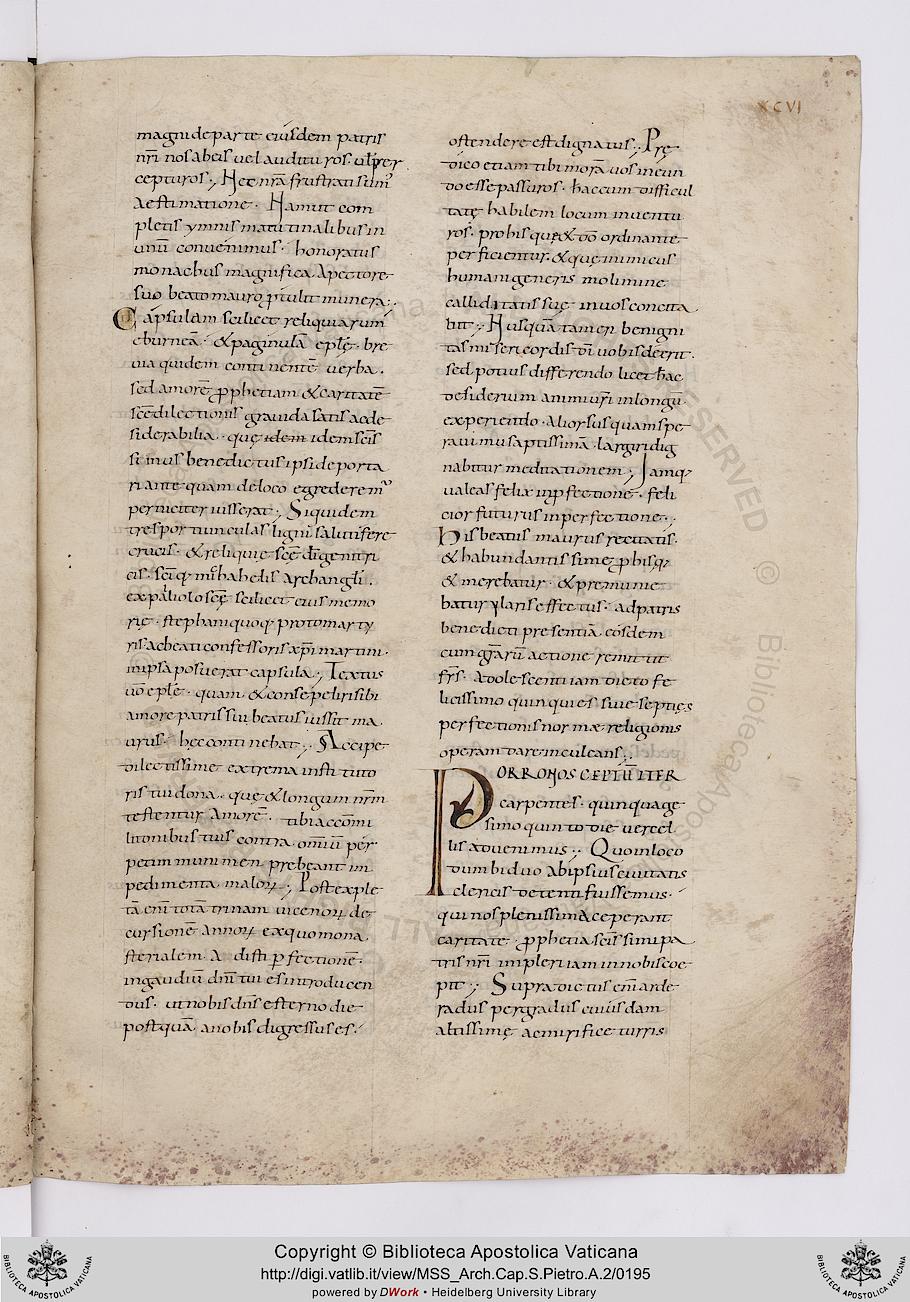 XCVI
magni de parte eiusdem patris
nr̄i nos ab eis uel auditu ros. uł per
cepturos; Nec nr̄a frustrati sum᷒
aestimatione. Nam ut com
pletis ymnis matutinalibus in
unū conuenimus. honoratus
monachus magnifica. A pectore
suo beato mauro p̄tulit munera;
Capsulam scilicet reliquiarum
eburneā. & paginulā eplę. bre
uia quidem continentē uerba.
sed amorē ꝓphetiam & caritatē
scē dilectionis grauida satis ac de
siderabilia. quę idem idem scīs
simus benedictus ipsi deporta
ri ante quam de loco egrederem᷒
perniciter iusserat; Siquidem
tres portiunculas ligni salutiferę
crucis. & reliquię scē dīgenitri
cis. scīq; mihahelis archangli.
ex palliolo scę scilicet eius memo
rię. stephani quoq; protomarty
ris ac beati confessoris xp̄i martini.
in ipsa posuerat capsula; Textus
uō eplę. quam & consepeliri sibi
amore patris sui beatus iussit ma
urus. hec continebat; Accipe
dilectissime extrema instituto
ris tui dona. quę & longum nrm̄
testentur amorē. tibi ac com̄i
litonibus tuis contra. omīū per
petim munimen prebeant im
pedimenta. malorꝝ; Post exple
tā enī totā trinam uicenorꝝ de
cursionē annorꝝ ex quo mona
sterialem. A disti ꝑfectionē.
in gaudiū dn̄i tui es introducen
dus. ut nobis dn̄s esterno die
postquā a nobis digressus es.
ostendere est dignatus; Prę
dico etiam tibi morā uos in eun
do esse passuros. hac cum difficul
tatę habilem locum inuentu
ros. pro his quę & dō ordinante
perficientur. & quę inimicus
humani generis molimine
calliditatis suę in uos concita
bit; Nusquā tamen benigni
tas misericordis dī uobis deerit.
sed potius differendo licet hac
desiderium animi uri in longū
experiendo. aliorsus quam spe
rauimus aptissimā. largiri dig
nabitur meditationem; Iamq;
ualeas felix in ꝓfectione. feli
cior futurus in perfectione;
His beatus maurus recitatis.
& habundantissime ꝓ hisq;
& merebatur. & premunie
batur ylaris effectus. ad patris
benedicti presentiā. eosdem
cum gr̄arū actione remittit
fr̄s. adolescentiam dicto fe
licissimo quin quies suię septięs
perfectionis normæ religionis
operam dare inculcans;
PORRO NOS CEPTŪ ITER
carpentes. quinquage
simo quinto die uercel
lis aduenimus; Quo in loco
dum biduo ab ipsius ciuitatis
clericis detenti fuissemus.
qui nos plenissima ceperant
caritate. ꝓphetia scīssimi pa
tris nr̄i impleri iam in nobis coe
pit; Supradictus enī arde
radus per gradus cuiusdam
altissimę ac mirificę turris
Copyright © Biblioteca Apostolica Vaticana
http://digi.vatlib.it/view/MSS_Arch.Cap.S.Pietro.A.2/0195
powered by DWork • Heidelberg University Library